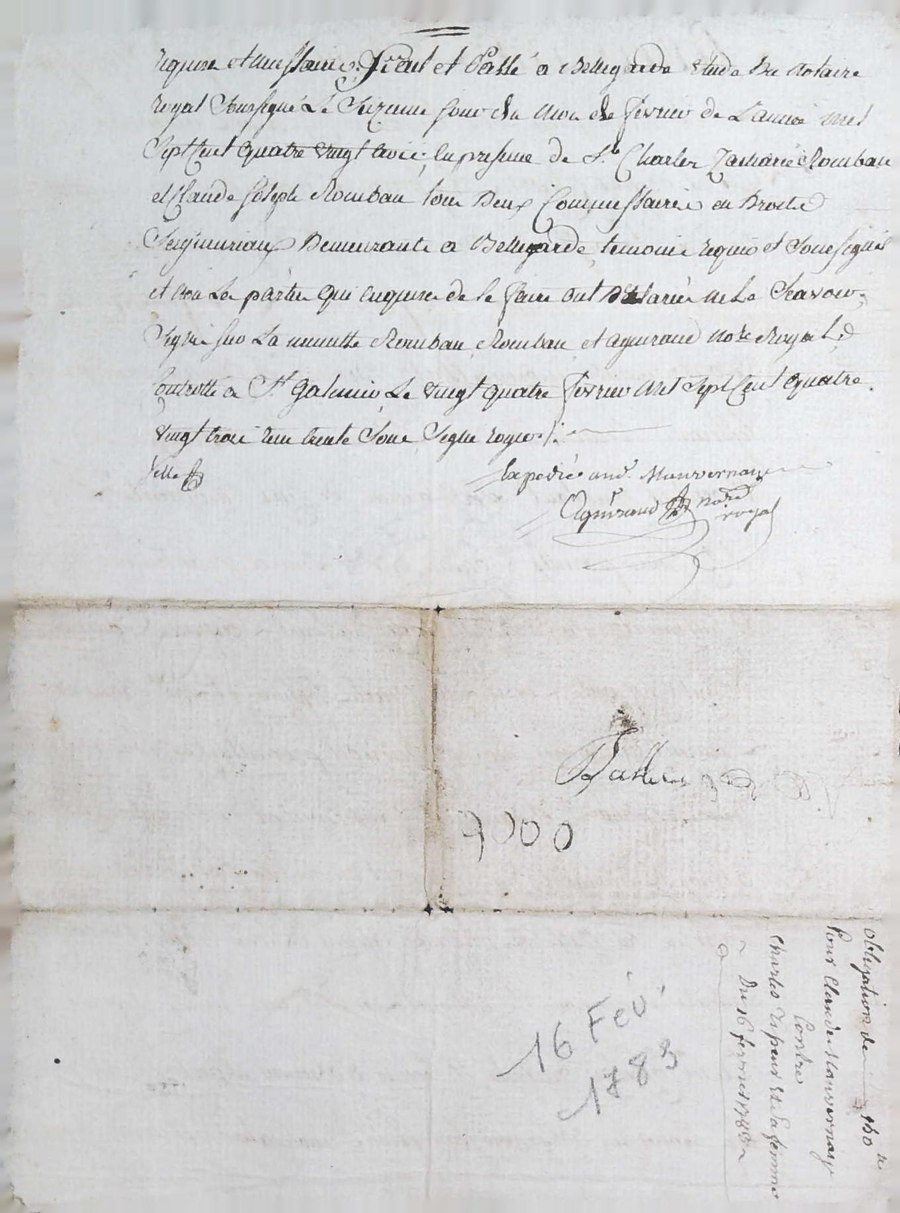 requise et necessaire, fait et Passé a Bellegarde Etude Du Notaire
Royal Soussigné Le Seizieme jour du Mois de fevrier de L'année mil
Sept Cent quatre vingt trois, en presence de Sr. Charles Zacharie Rombau
et Claude Joseph Rombau tous Deux Commissaires en Droits
Seigneuriaux Demeurants a Bellegarde temoins requis et soussignés
et non La partie qui enquise de le faire ont Declarées ne Le Scavoir,
Signé sur La minutte Rombau, Rombau et agniraud Nore. Royal
Controllé a St. Galmier Le vingt quatre fevrier Mil Sept Cent quatre
vingt trois trente Sous Signé
Expedié aud. Mauvernay
Agniraud nore
royal
16 Fev.
1783
obligation de 150
Pour Claude Mauvernay
Contre
Charles et Sa femme
Du 16 fevrier 1783